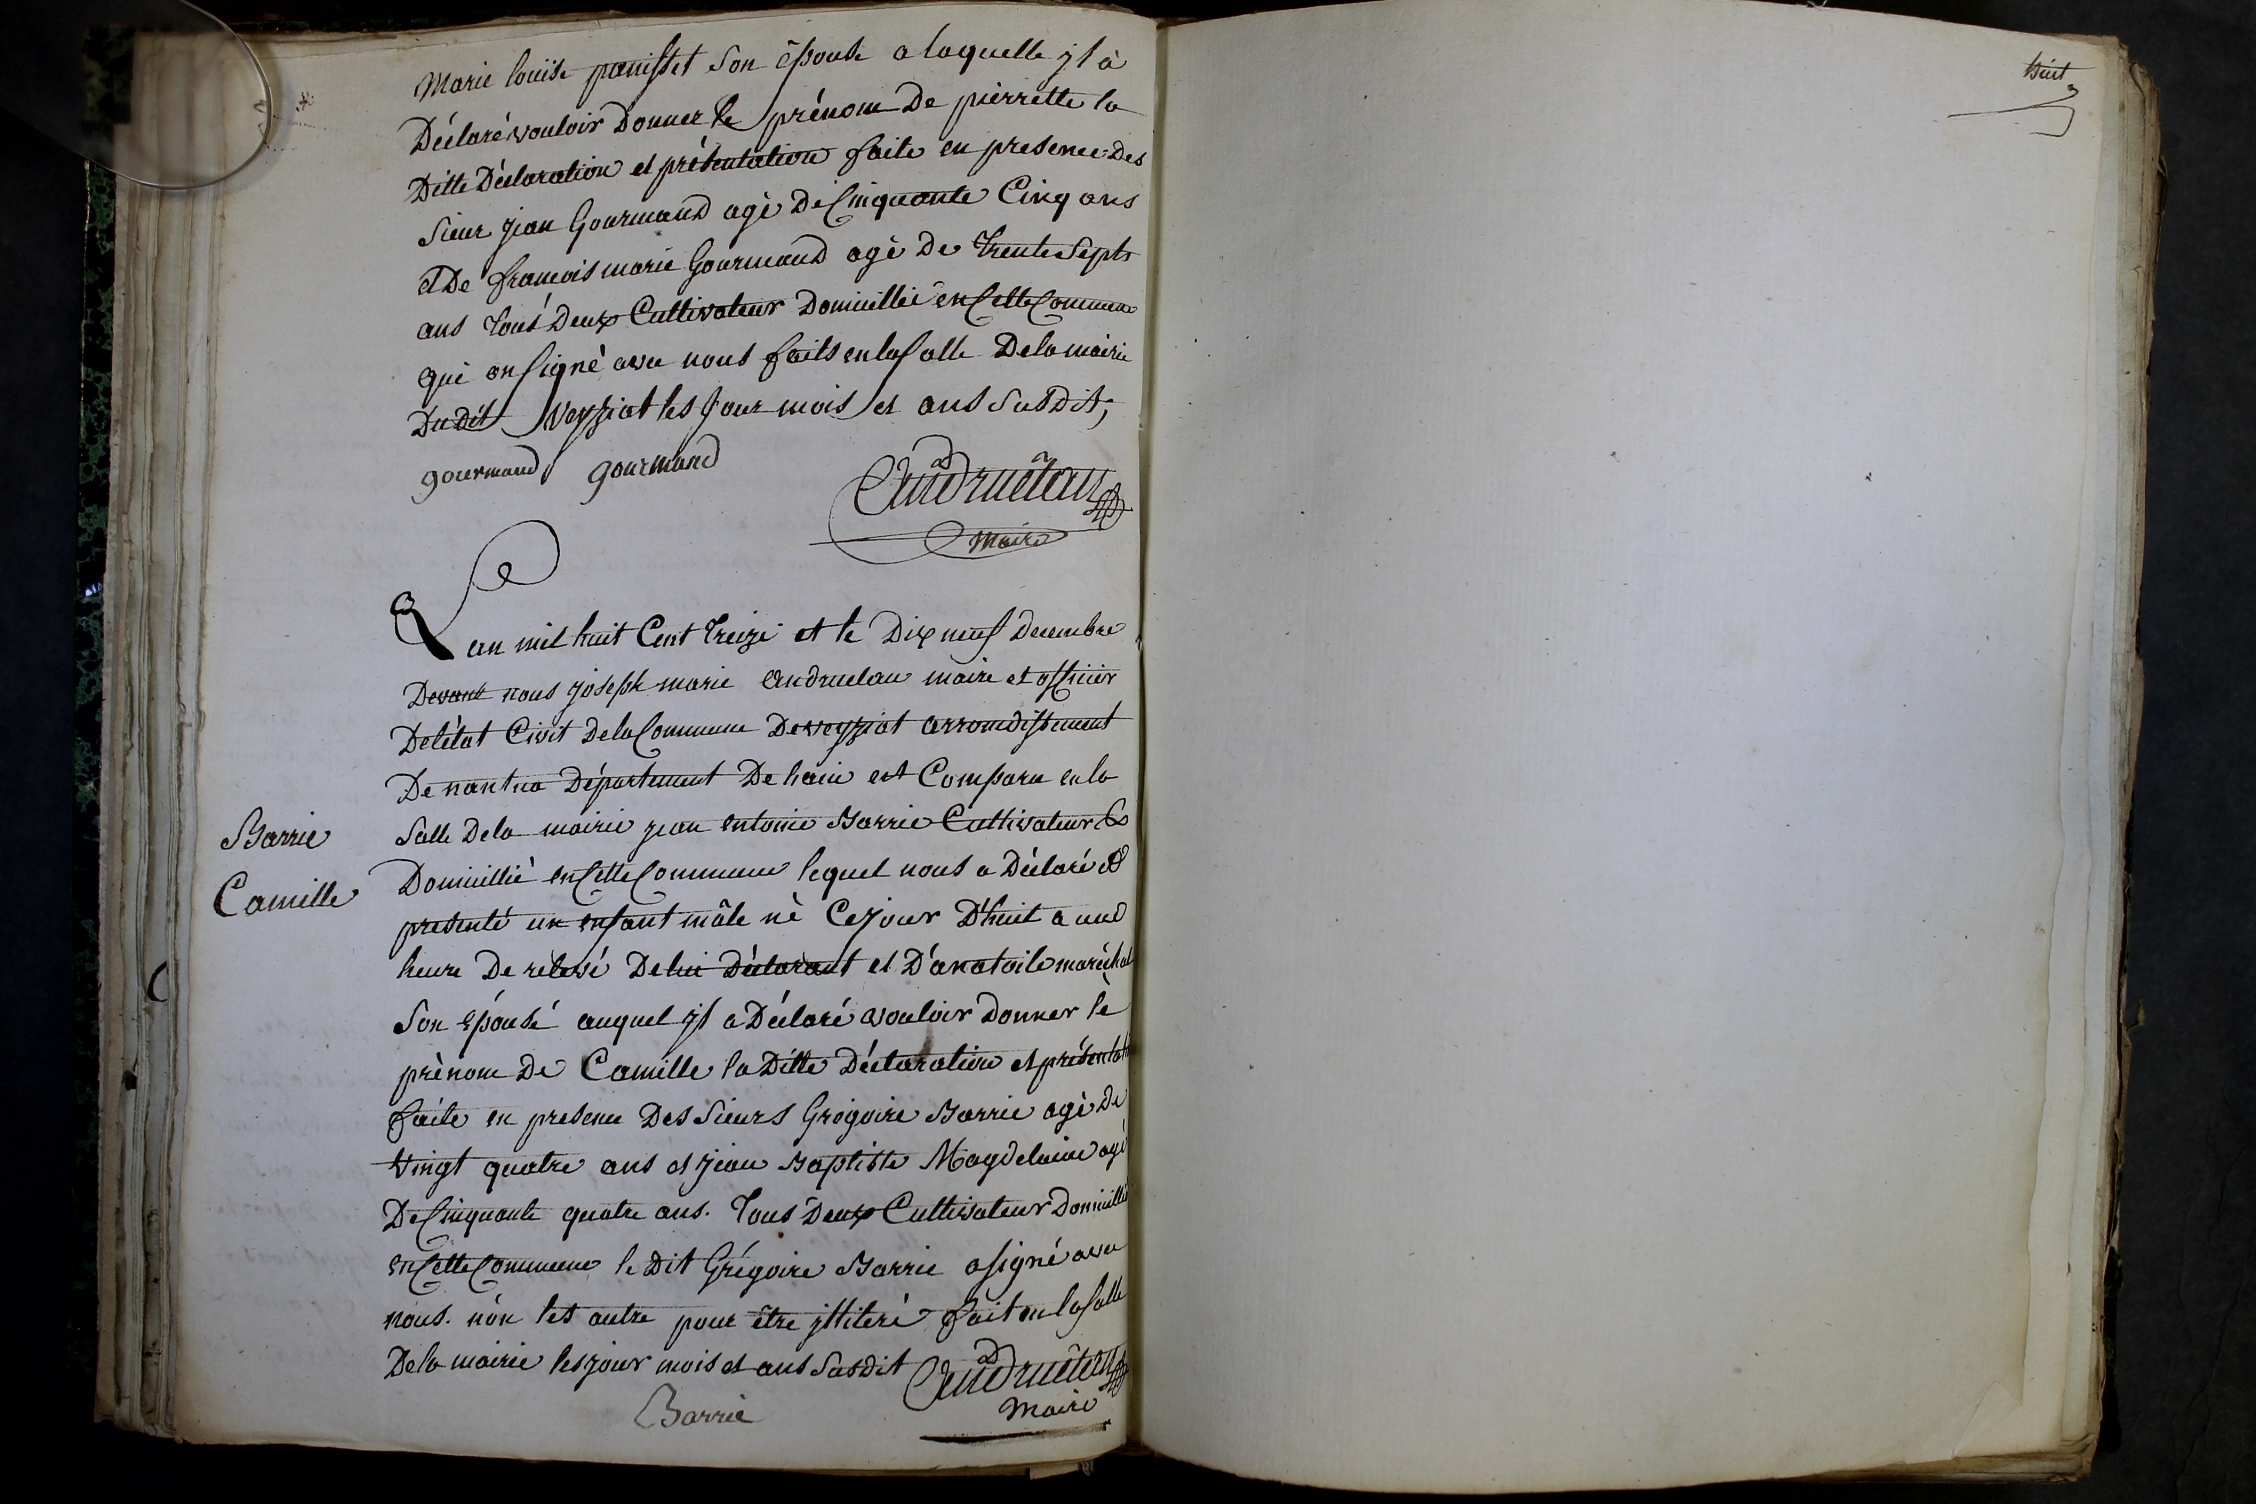 Marie louise panisset son épouse a laquelle jl à
Déclaré vouloir Donner le prénom De pierrette la
Ditte Déclaration et présentation faite en presence Des
Sieur jean Gourmand agé De Cinquante Cinq ans
et De francois marie Gourmand agé De Trente Sept
ans Tous Deux Cultivateur Domicillié en Cette Commune
qui on signé avec nous faits en la salle De la mairie
Du dit Veyziat les Jour mois et ans Susdit;
gourmand gourmand
Andruétan
maire
Lan mil huit Cent Treize et le Dix neuf Decembre
Devant nous joseph marie andruetan maire et officier
De létat Civil de la Commune De veyziat arrondissement
De nantua Département De hain est Comparu en la
Salle De la mairie jean antoine Barrie Cultivateur
Domicillié en Cette Commune lequel nous a Déclaré et
presenté un enfant mâle né Ce jour D'huit a une
heure De relevé De lui Déclarant et D'anatoile maréchal
Son épousé auquel jl a Déclaré vouloir Donner le
prénom De Camille la Ditte Déclaration et présentati
faite en presence Des Sieurs Grégoire Barrie agé De
Vingt quatre ans et jean Baptiste Magdelaine agé
De Cinquante quatre ans. Tous Deux Cultivateur Domicillié
en Cette Commune le Dit Grégoire Barrie a signé avec
nous. nón les autre pour être jlliteré fait en la salle
De la mairie les jour mois et ans Susdit
Andruétan
maire
Barrie
Barrie
Camille
huit